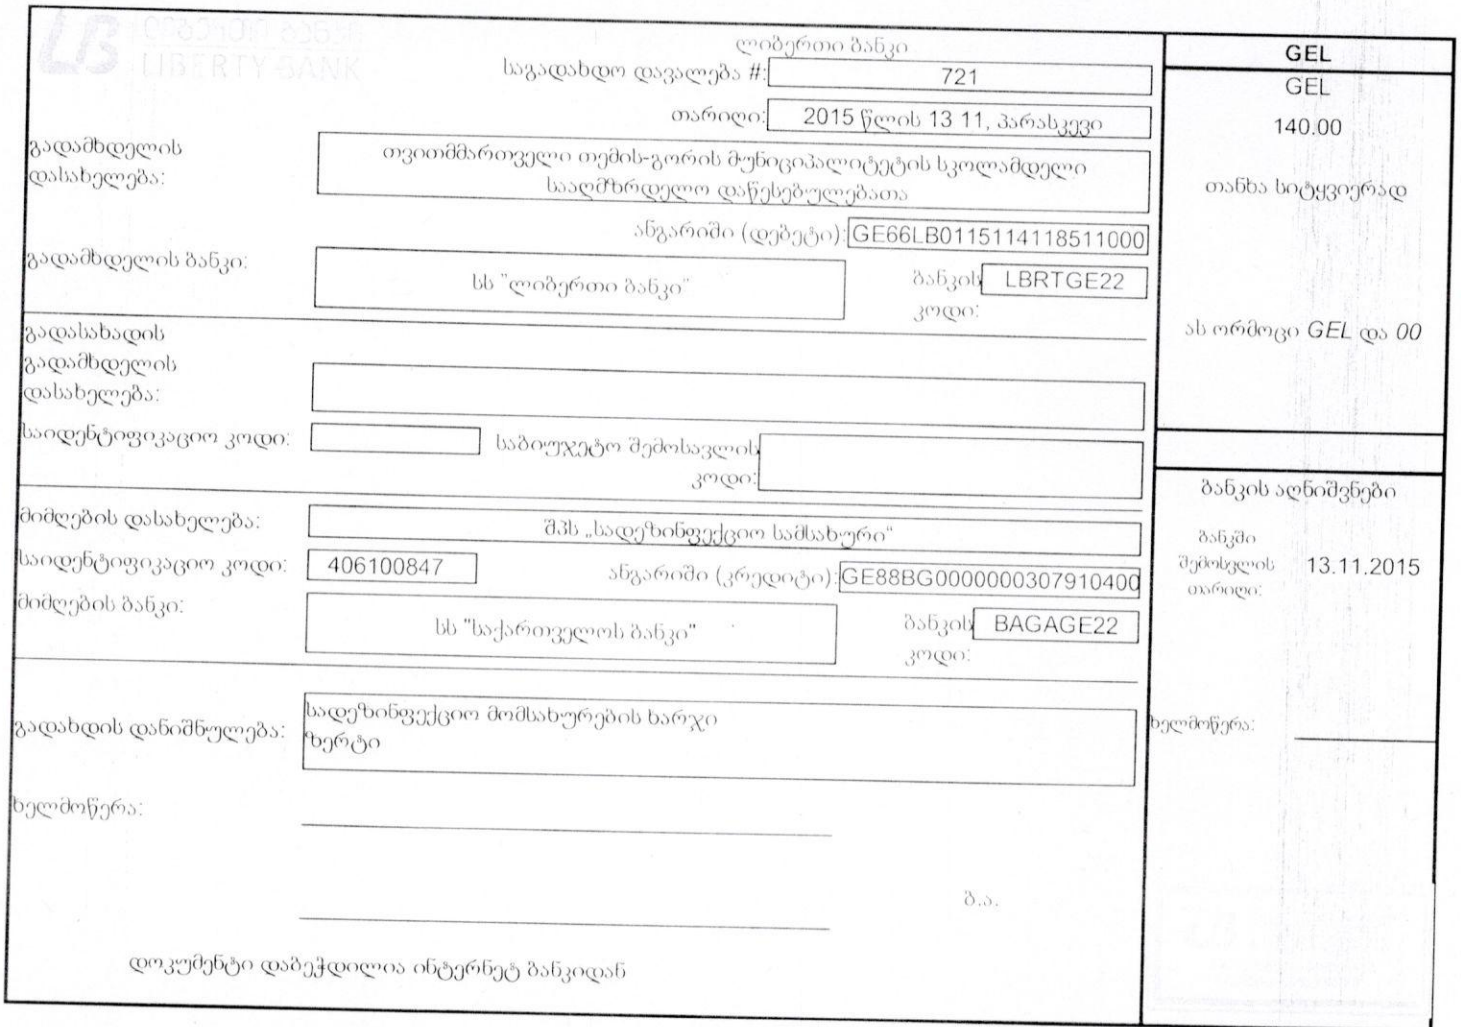 LB ლიბერთი ბანკი
LIBERTY BANK
ლიბერთი ბანკი
საგადახდო დავალება #: 721
თარიღი: 2015 წლის 13 11, პარასკევი
გადამხდელის
დასახელება:
თვითმმართველი თემის-გორის მუნიციპალიტეტის სკოლამდელი
სააღმზრდელო დაწესებულებათა
ანგარიში (დებეტი): GE66LB0115114118511000
გადამხდელის ბანკი: სს "ლიბერთი ბანკი"
ბანკის LBRTGE22
კოდი:
გადასახადის
გადამხდელის
დასახელება:
საიდენტიფიკაციო კოდი:
საბიუჯეტო შემოსავლის
კოდი:
მიმღების დასახელება: შპს „სადეზინფექციო სამსახური“
საიდენტიფიკაციო კოდი: 406100847
ანგარიში (კრედიტი): GE88BG0000000307910400
მიმღების ბანკი: სს "საქართველოს ბანკი"
ბანკის BAGAGE22
კოდი:
გადახდის დანიშნულება:
სადეზინფექციო მომსახურების ხარჯი
ზერტი
ხელმოწერა:
ბ.ა.
დოკუმენტი დაბეჭდილია ინტერნეტ ბანკიდან
GEL
GEL
140.00
თანხა სიტყვიერად
ას ორმოცი GEL და 00
ბანკის აღნიშვნები
ბანკში
შემოსვლის 13.11.2015
თარიღი:
ხელმოწერა: